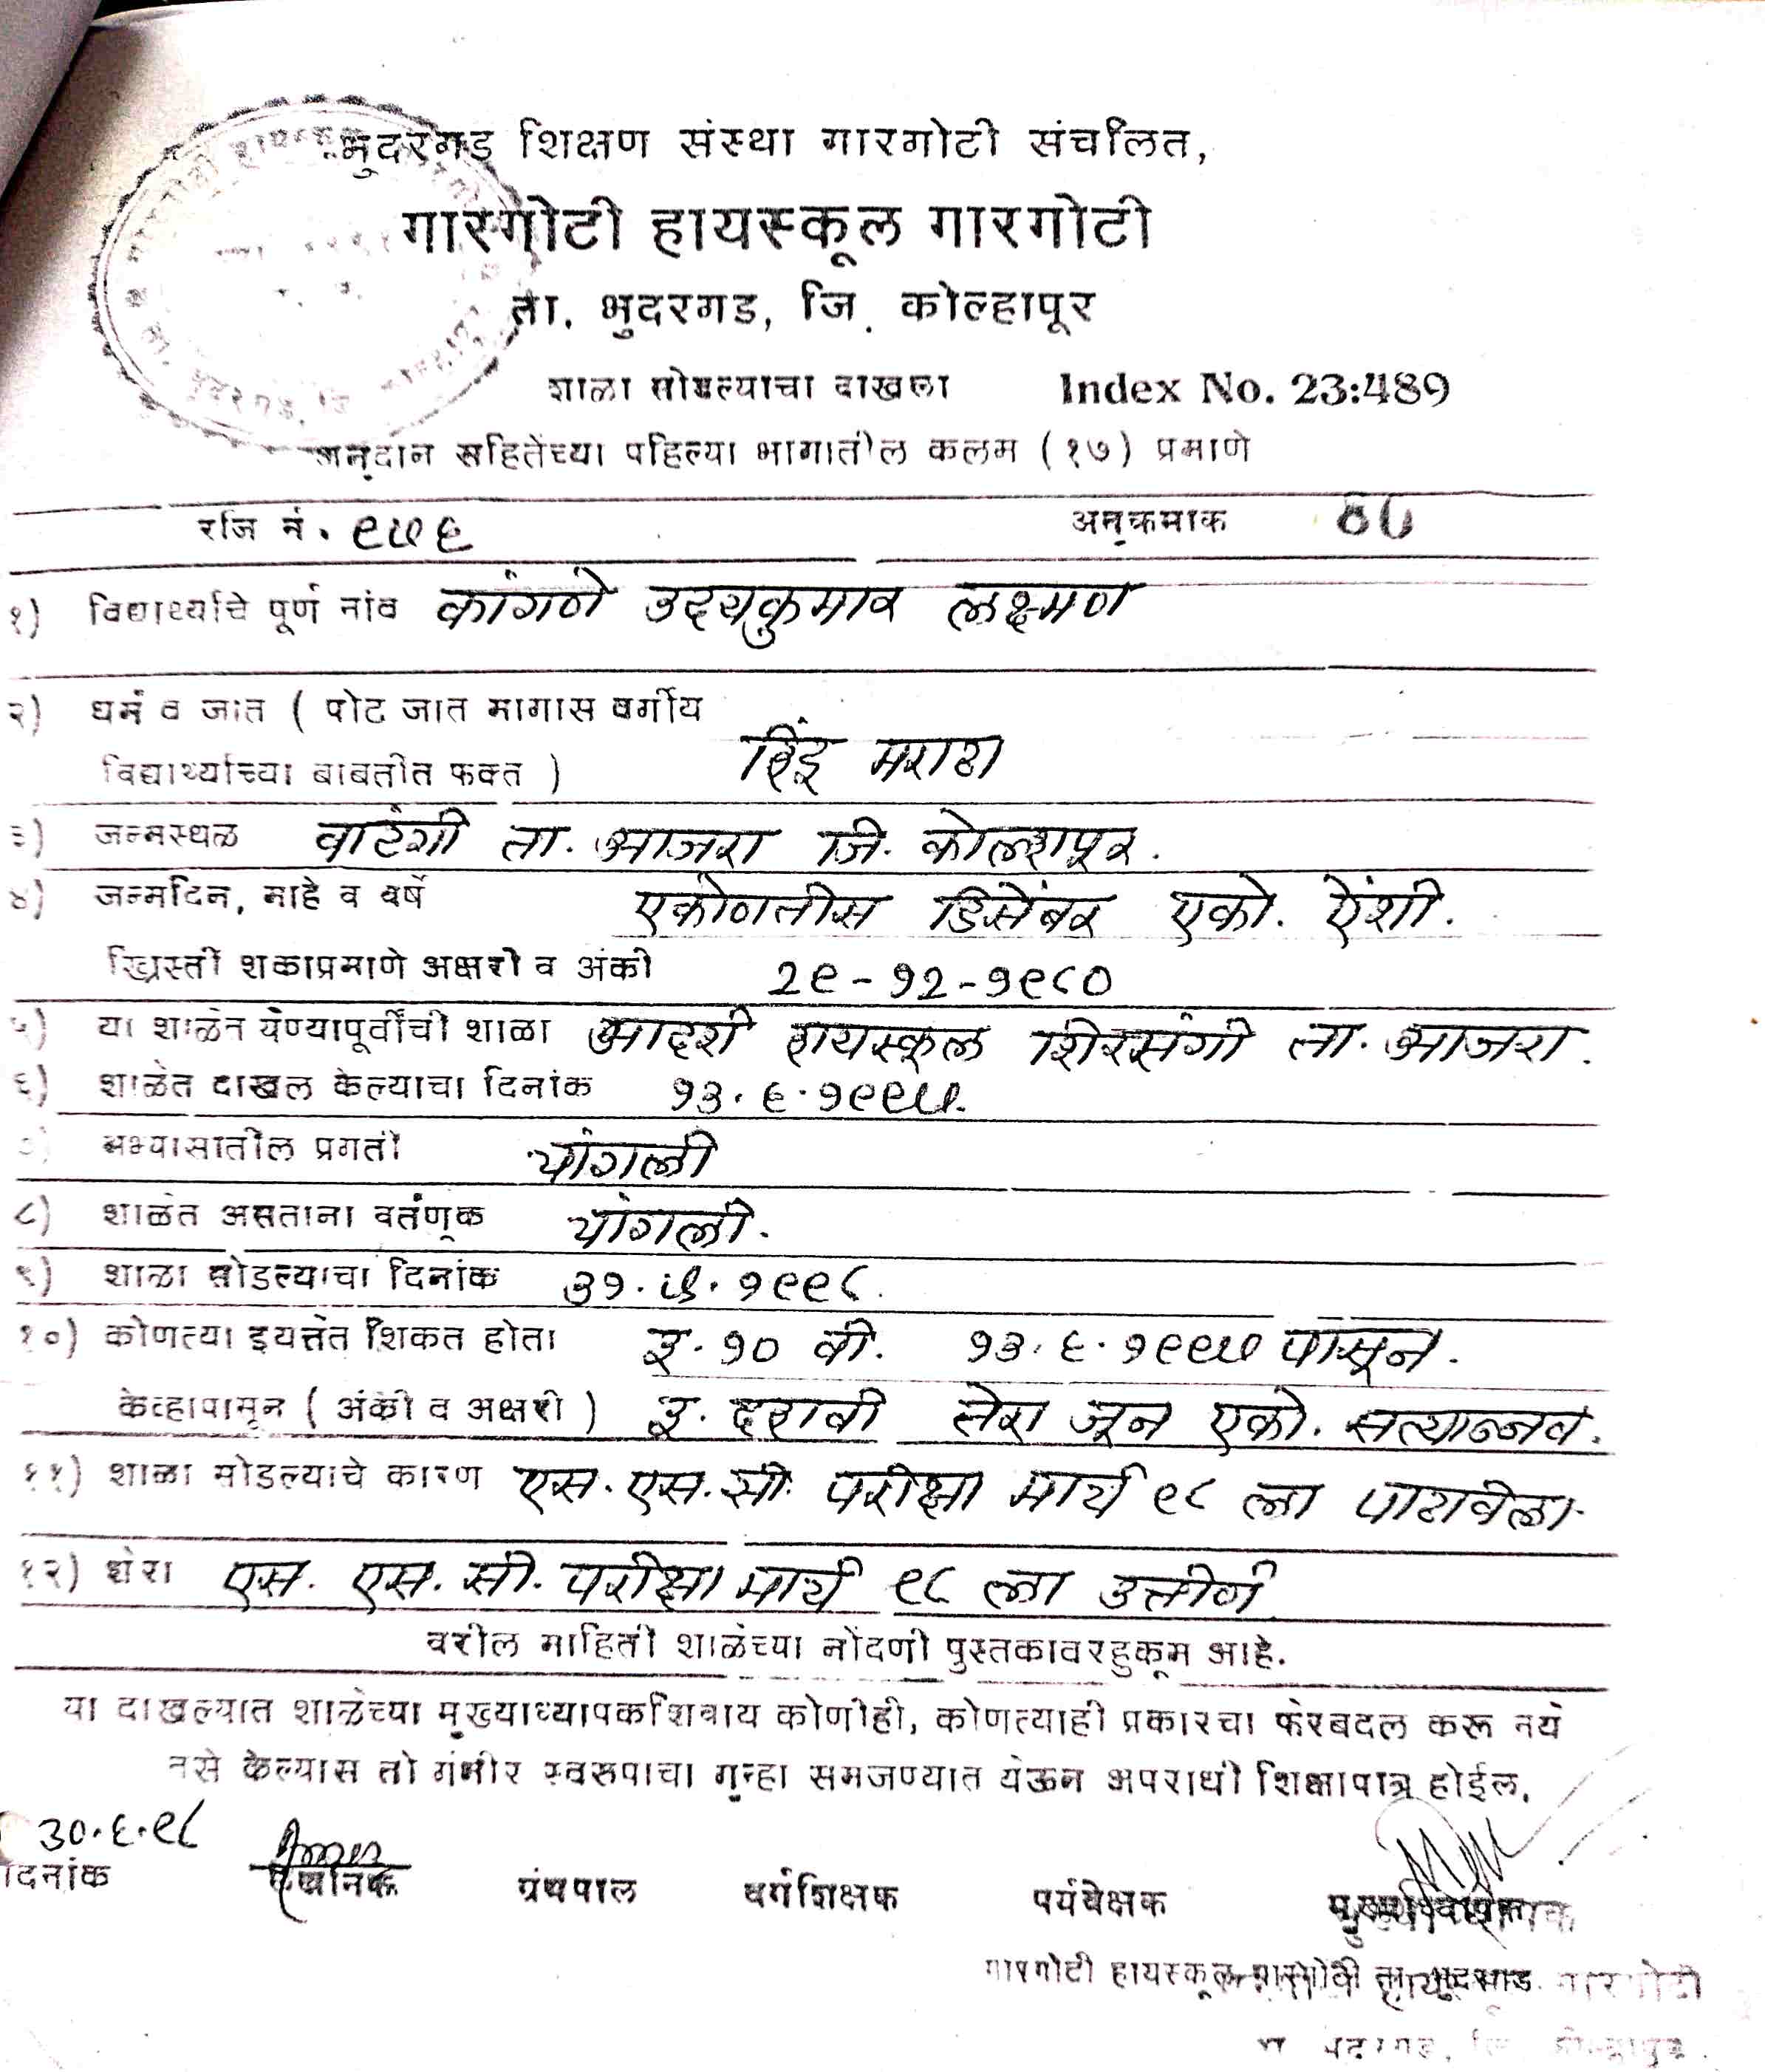 भुदरगड शिक्षण संस्था गारगोटी संचलित,
गारगोटी हायस्कूल गारगोटी
ता. भुदरगड, जि. कोल्हापूर
शाळा सोडल्याचा दाखला Index No. 23:489
अनुदान सहितेच्या पहिल्या भागातील कलम (१७) प्रमाणे
रजि नं. ९७६ अनुक्रमांक
१) विद्यार्थ्याचे पूर्ण नांव कांगणे उदयकुमार लक्ष्मण
२) धर्म व जात ( पोट जात मागास वर्गीय
विद्यार्थ्याच्या बाबतीत फक्त ) हिंदू मराठा
३) जन्मस्थळ वाटंगी ता. आजरा जि. कोल्हापूर.
४) जन्मदिन, माहे व वर्षे एकोणतीस डिसेंबर एको. ऐंशी.
ख्रिस्ती शकाप्रमाणे अक्षरी व अंकी २९-१२-१९८०
५) या शाळेत येण्यापूर्वीची शाळा आदर्श हायस्कूल शिरसंगी ता. आजरा.
६) शाळेत दाखल केल्याचा दिनांक १३.६.१९९७.
अभ्यासातील प्रगती चांगली
८) शाळेत असताना वर्तणूक चांगली.
९) शाळा सोडल्याचा दिनांक ३१.५.१९९८.
१०) कोणत्या इयत्तेत शिकत होता इ. १० वी. १३.६.१९९७ पासून.
केव्हापासून ( अंकी व अक्षरी ) इ. दहावी तेरा जून एको. सत्यान्नव.
११) शाळा सोडल्याचे कारण एस. एस. सी. परीक्षा मार्च ९८ ला पाठविला.
१२) शेरा एस. एस. सी. परीक्षा मार्च ९८ ला उत्तीर्ण
वरील माहिती शाळेच्या नोंदणी पुस्तकावरहुकूम आहे.
या दाखल्यात शाळेच्या मुख्याध्यापकाशिवाय कोणीही, कोणत्याही प्रकारचा फेरबदल करू नये
तसे केल्यास तो गंभीर स्वरुपाचा गुन्हा समजण्यात येऊन अपराधी शिक्षापात्र होईल.
३०.६.९८
दिनांक ग्रंथपाल वर्गशिक्षक पर्यवेक्षक मुख्याध्यापक
गारगोटी हायस्कूल गारगोटी ता. भुदरगड